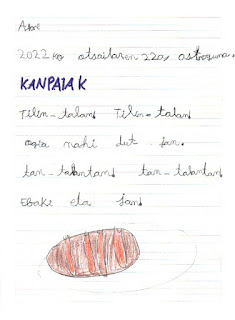 Atare
2022ko otsailaren 22a, osteguna.
KANPAIAK
Tilin-talan! Tilin-talan!
ogia nahi dut jan.
tan-talantan! tan-talantan!
Ebaki eta jan!